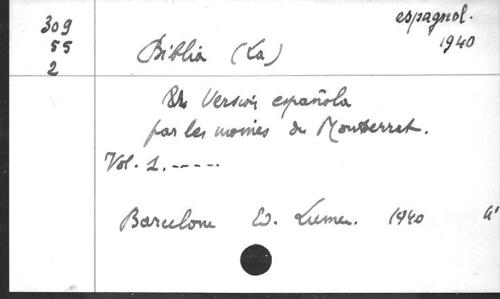 309
55
2
espagnol.
1940
Biblia (La)
Version española
par les moines de Montserrat.
Vol. 1. -----
Barcelone Ed. Lumen. 1940